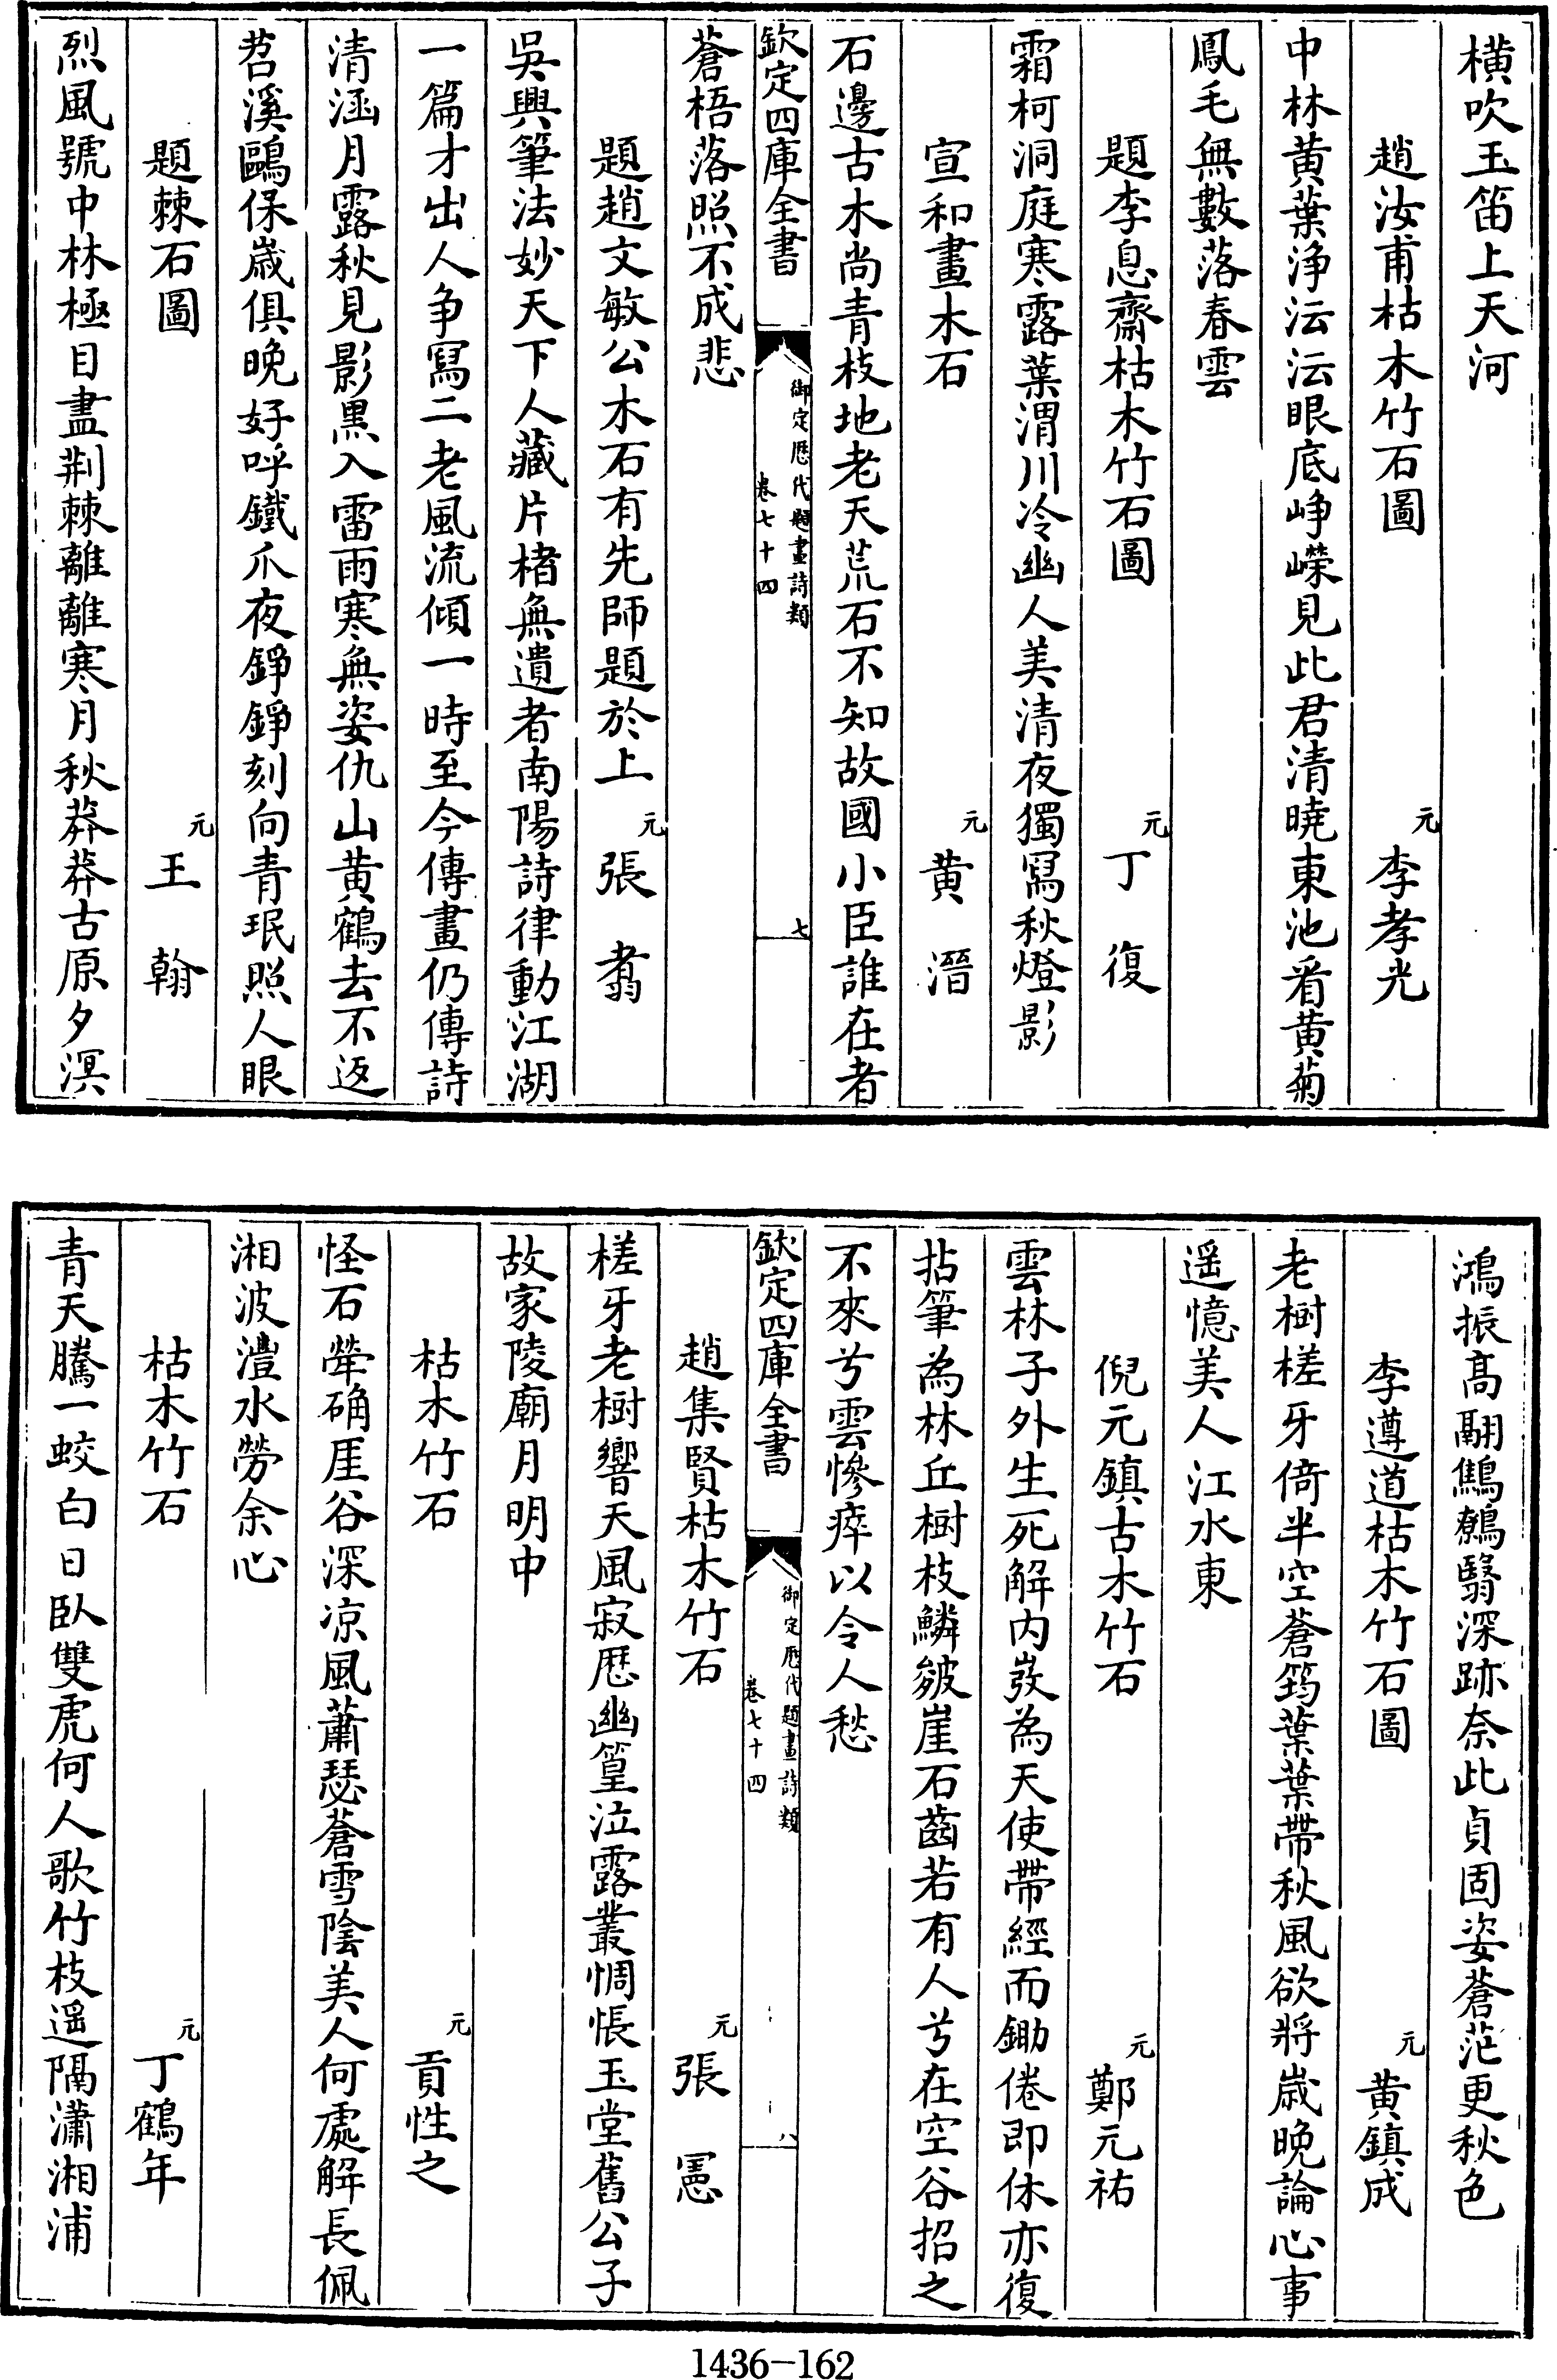 橫吹玉笛上天河
趙汝甫枯木竹石圖 元 李孝光
中林黄葉浄沄沄眼底崢嶸見此君清曉東池看黄菊
鳳毛無數落春雲
題李息齋枯木竹石圖 元 丁復
霜柯洞庭寒露葉渭川冷幽人美清夜獨寫秋燈影
宣和畫木石 元 黄溍
石邊古木尚青枝地老天荒石不知故國小臣誰在者
欽定四庫全書 御定歴代題畫詩類 卷七十四 七
蒼梧落照不成悲
題趙文敏公木石有先師題於上 元 張翥
吳興筆法妙天下人藏片楮無遺者南陽詩律動江湖
一篇才出人争寫二老風流傾一時至今傳畫仍傳詩
清涵月露秋見影黒入雷雨寒無姿仇山黄鶴去不返
苕溪鷗保歳俱晚好呼鐵爪夜錚錚刻向青珉照人眼
題棘石圖 元 王翰
烈風號中林極目盡荆棘離離寒月秋莽莽古原夕溟
鴻振髙翮鷦鷯翳深跡奈此貞固姿蒼茫更秋色
李遵道枯木竹石圖 元 黄鎮成
老樹槎牙倚半空蒼筠葉葉帶秋風欲將歳晚論心事
遥憶美人江水東
倪元鎮古木竹石 元 鄭元祐
雲林子外生死解内𤼵為天使帶經而鋤倦即休亦復
拈筆為林丘樹枝鱗皴崖石齒若有人兮在空谷招之
不來兮雲慘瘁以令人愁
欽定四庫全書 御定歴代題畫詩類 卷七十四 八
趙集賢枯木竹石 元 張憲
槎牙老樹響天風寂歴幽篁泣露叢惆悵玉堂舊公子
故家陵廟月明中
枯木竹石 元 貢性之
怪石犖确厓谷深凉風蕭瑟蒼雪陰美人何處解長佩
湘波澧水勞余心
枯木竹石 元 丁鶴年
青天騰一蛟白日臥雙虎何人歌竹枝遥隔瀟湘浦
1436-162